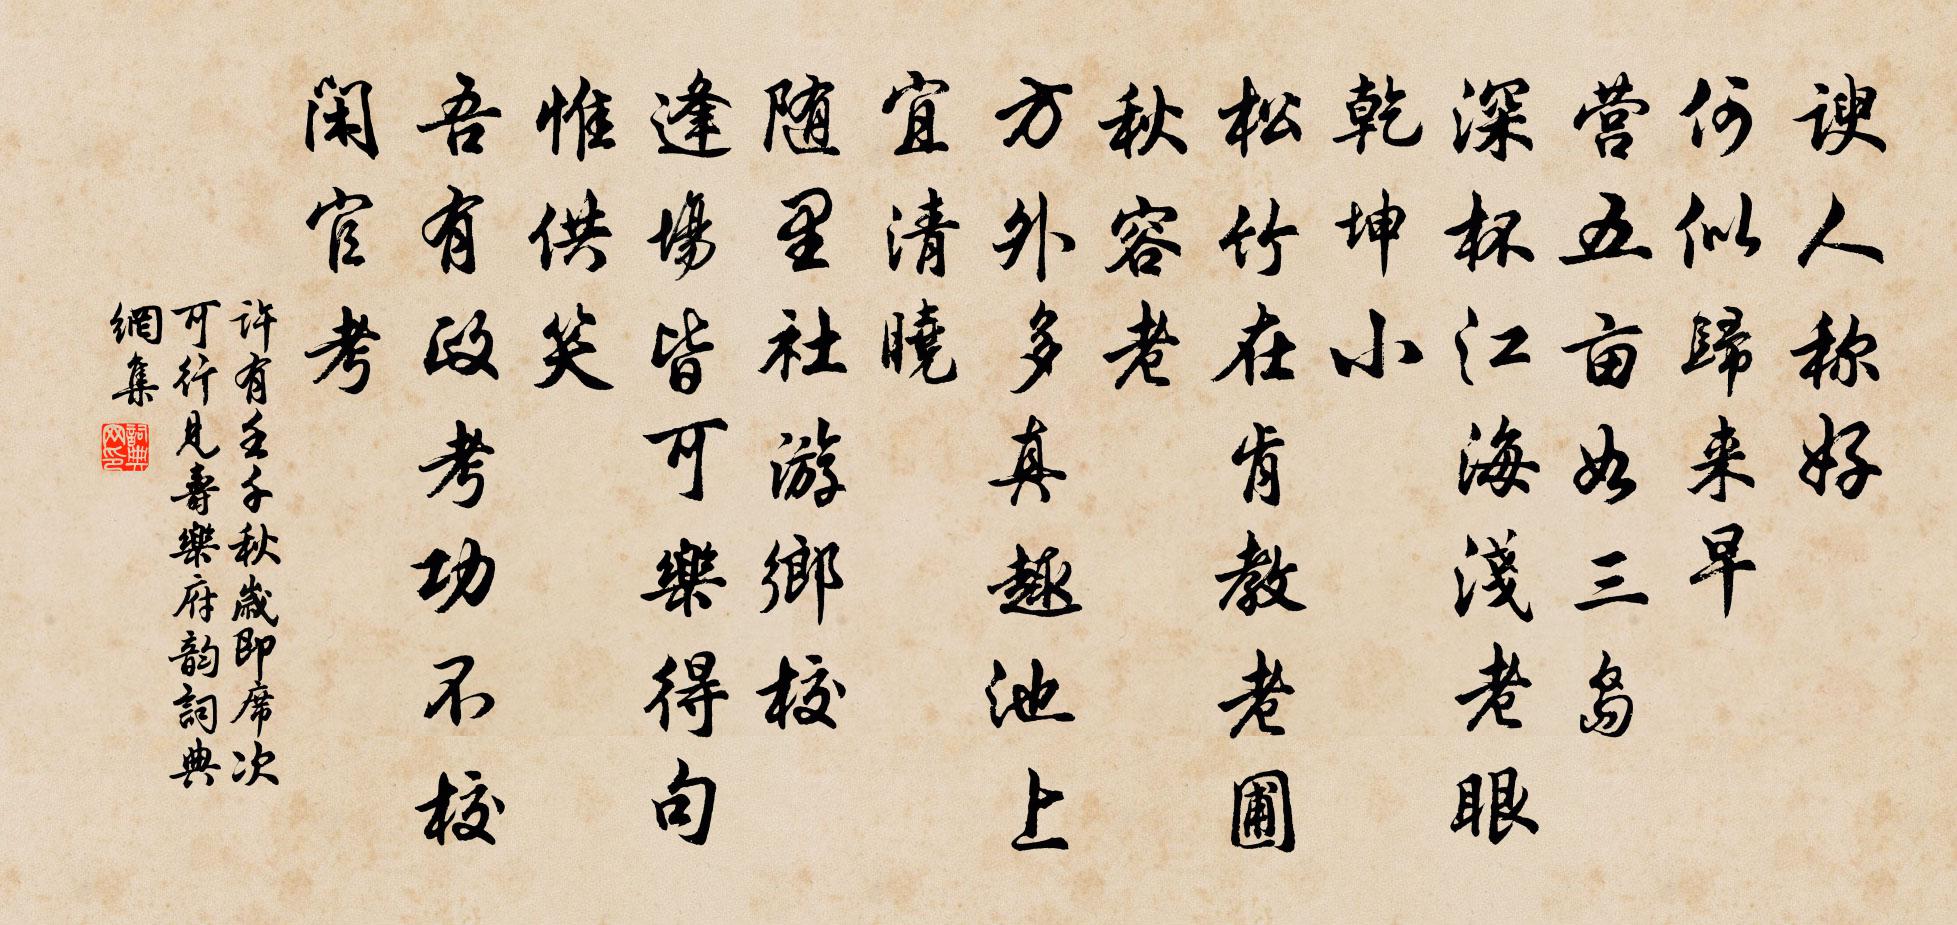 谀人称好
何似歸来早
营五亩如三岛
深杯江海淺老眼
乾坤小
松竹在肯教老圃
秋容老
方外多真趣池上
宜清曉
随里社游鄉校
逢場皆可樂得句
惟供笑
吾有政考功不校
闲官考
许有壬千秋歲即席次
可行見壽樂府韵詞典
網集
詞典网印